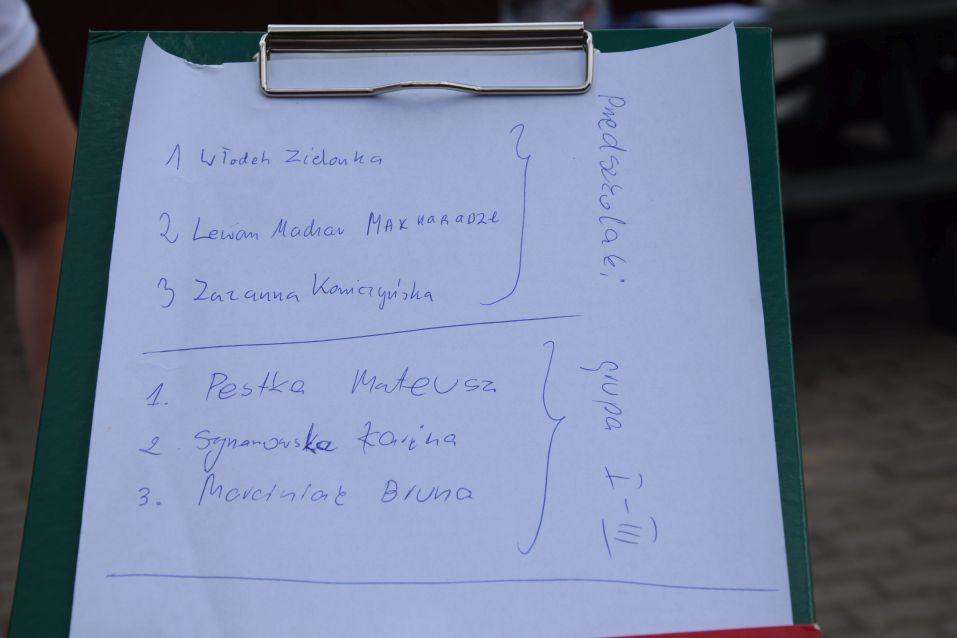 1 Włodek Zielonka
2 Lewan MAKHARADZE
3 Zuzanna Koniczyńska
Przedszkolaki
1. Pestka Mateusz
2. Szymanowska Karina
3. Marciniak Bruna
grupa I-III